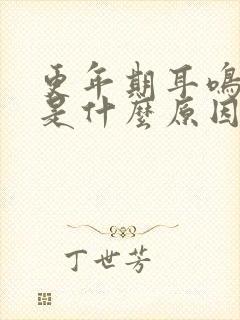 更年期耳鳴
是什麼原因
丁世芳